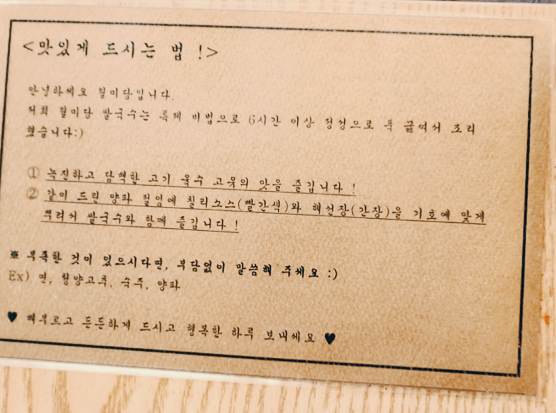 <맛있게 드시는 법 !>
안녕하세요 월미당입니다.
저희 월미당 쌀국수는 특제 비법으로 6시간 이상 정성으로 푹 끓여서 조리
했습니다:)
① 녹진하고 담백한 고기 육수 고유의 맛을 즐깁니다 !
② 같이 드린 양파 절임에 칠리소스(빨간색)와 해선장(간장)을 기호에 맞게
뿌려서 쌀국수와 함께 즐깁니다 !
※ 부족한 것이 있으시다면, 부담없이 말씀해 주세요 :)
Ex) 면, 청양고추, 숙주, 양파
♥ 배부르고 든든하게 드시고 행복한 하루 보내세요 ♥